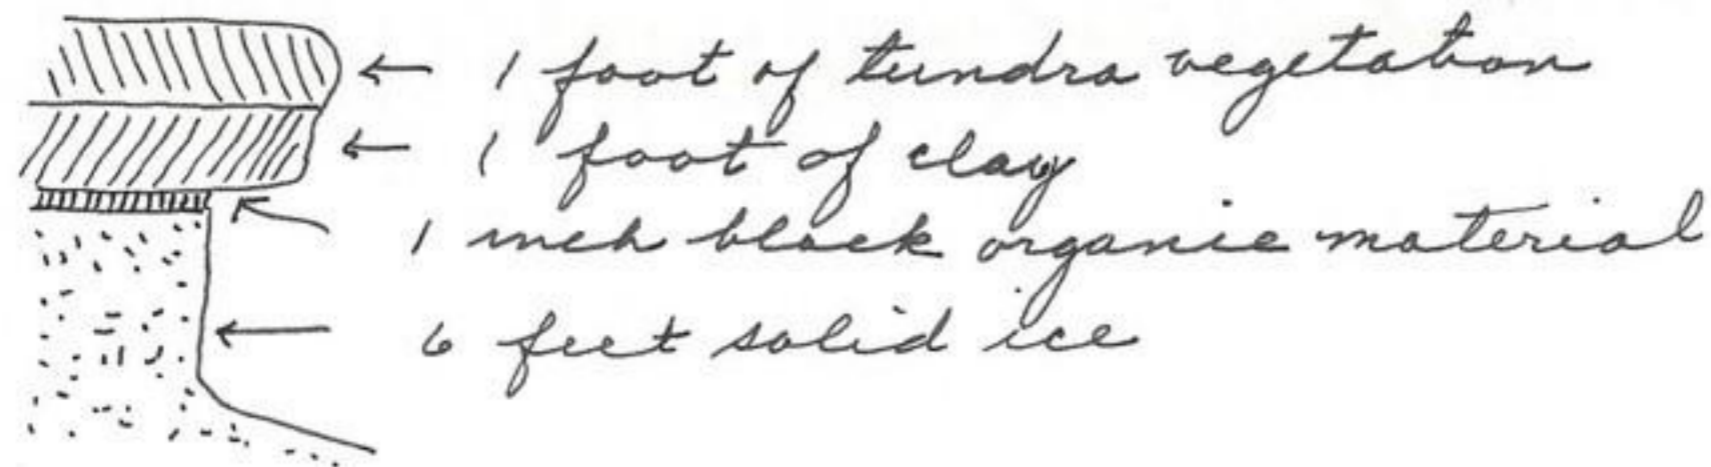 1 foot of tundra vegetation
1 foot of clay
1 inch black organic material
6 feet solid ice